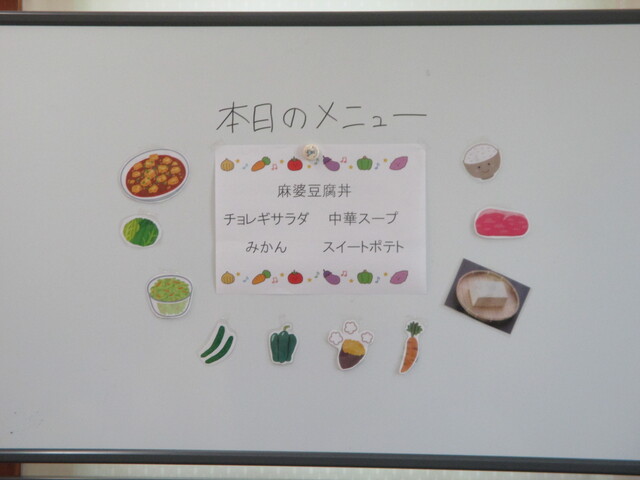 本日のメニュー
麻婆豆腐丼
チョレギサラダ 中華スープ
みかん スイートポテト